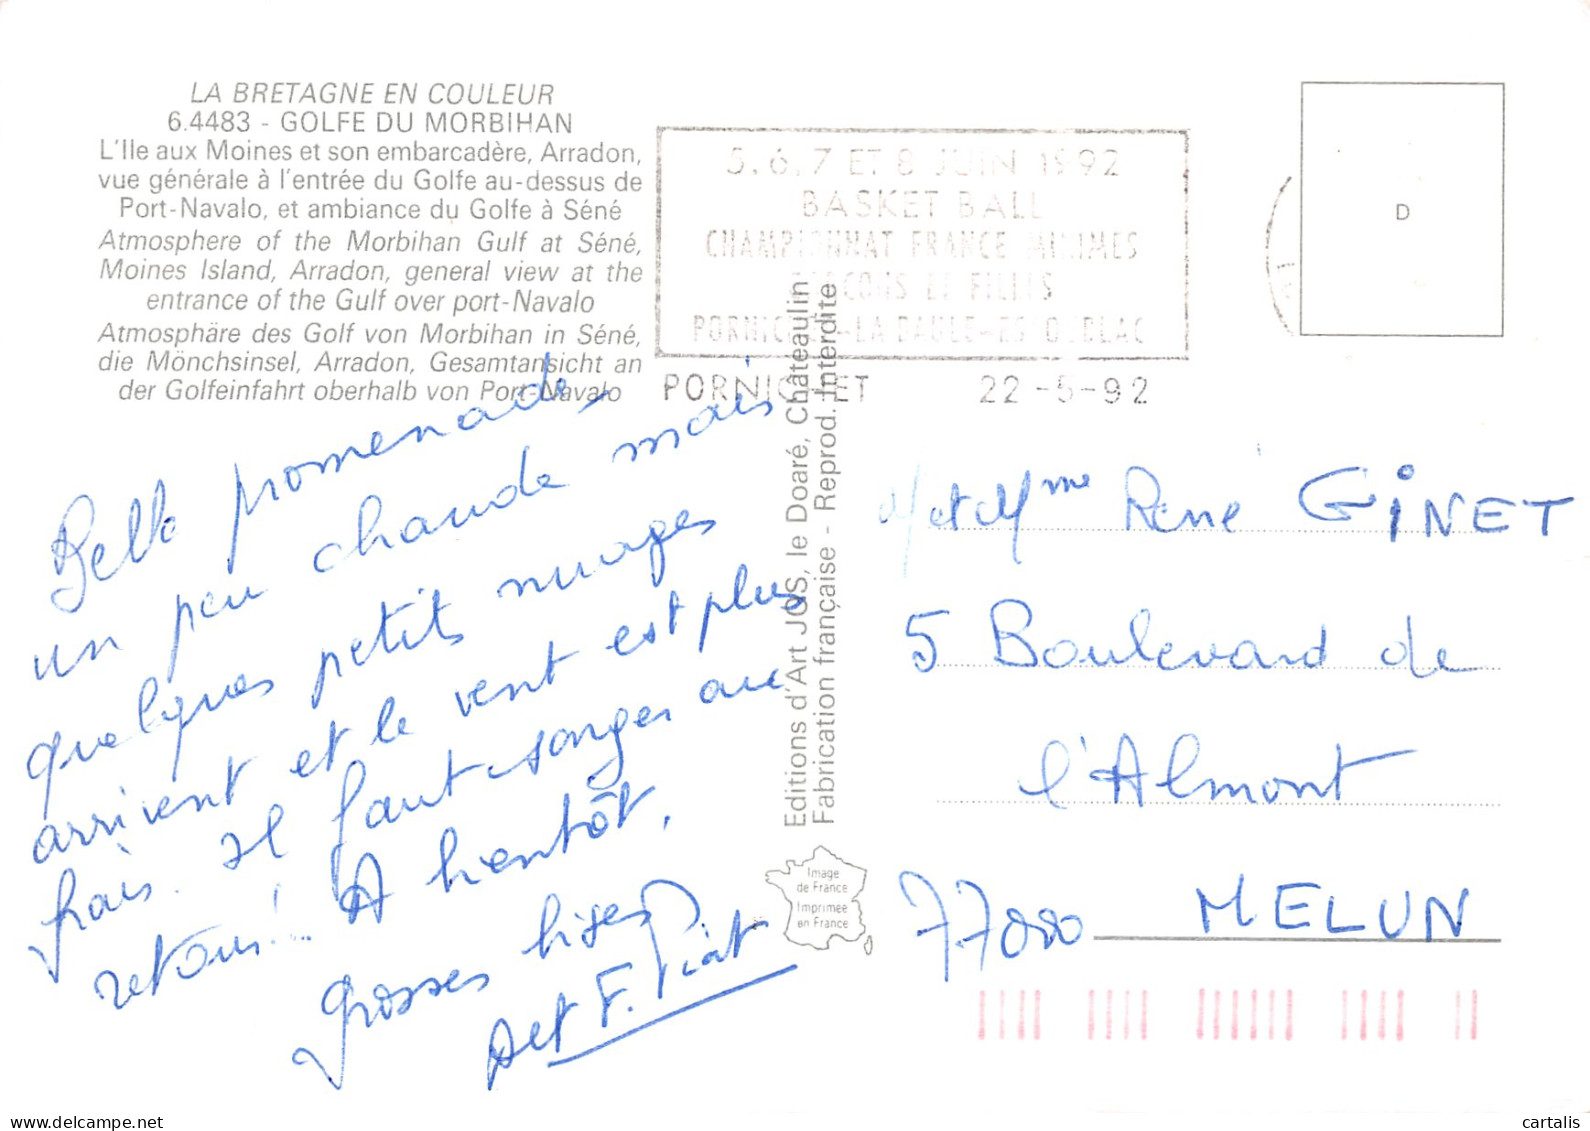 LA BRETAGNE EN COULEUR
6.4483 - GOLFE DU MORBIHAN
L'Ile aux Moines et son embarcadère, Arradon,
vue générale à l'entrée du Golfe au-dessus de
Port-Navalo, et ambiance du Golfe à Séné
Atmosphere of the Morbihan Gulf at Séné,
Moines Island, Arradon, general view at the
entrance of the Gulf over port-Navalo
Atmosphäre des Golf von Morbihan in Séné,
die Mönchsinsel, Arradon, Gesamtansicht an
der Golfeinfahrt oberhalb von Port-Navalo
5.6.7 ET 8 JUIN 1992
BASKET BALL
CHAMPIONNAT FRANCE MINIMES
GARCONS ET FILLES
PORNICHET-LA BAULE-ESCOUBLAC
PORNICHET 22-5-92
D
Belle promenade
un peu chaude mais
quelques petits nuages
arrivent et le vent est plus
frais. Il faut songer au
retour! A bientôt,
grosses bises
F. Piat
Editions d'Art JOS, le Doaré, Châteaulin
Fabrication française - Reprod. Interdite
Image
de France
Imprimée
en France
M et Mme René GINET
5 Boulevard de
l'Almont
77000 MELUN
cartalis